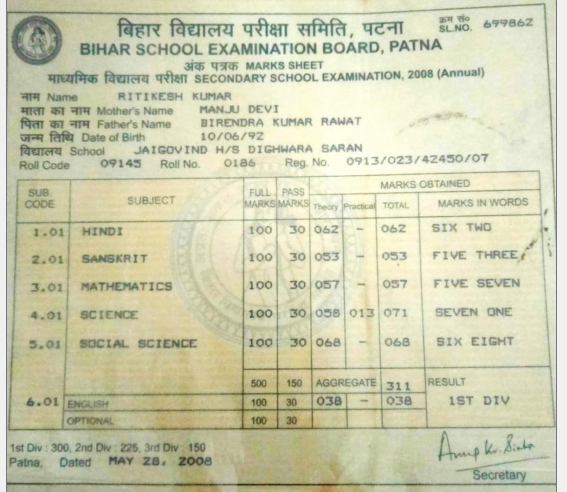 बिहार विद्यालय परीक्षा समिति, पटना
क्रम सं० SL.NO. 699862
BIHAR SCHOOL EXAMINATION BOARD, PATNA
अंक पत्रक MARKS SHEET
माध्यमिक विद्यालय परीक्षा SECONDARY SCHOOL EXAMINATION, 2008 (Annual)
नाम Name RITIKESH KUMAR
माता का नाम Mother's Name MANJU DEVI
पिता का नाम Father's Name BIRENDRA KUMAR RAWAT
जन्म तिथि Date of Birth 10/06/92
विद्यालय School JAIGOVIND H/S DIGHWARA SARAN
Roll Code 09145 Roll No. 0186 Reg. No. 0913/023/42450/07
SUB. CODE SUBJECT FULL MARKS PASS MARKS MARKS OBTAINED
Theory Practical TOTAL MARKS IN WORDS
1.01 HINDI 100 30 062 - 062 SIX TWO
2.01 SANSKRIT 100 30 053 - 053 FIVE THREE
3.01 MATHEMATICS 100 30 057 - 057 FIVE SEVEN
4.01 SCIENCE 100 30 058 013 071 SEVEN ONE
5.01 SOCIAL SCIENCE 100 30 068 - 068 SIX EIGHT
500 150 AGGREGATE 311 RESULT
6.01 ENGLISH 100 30 038 - 038 1ST DIV
OPTIONAL 100 30
1st Div : 300, 2nd Div : 225, 3rd Div : 150
Patna, Dated MAY 28, 2008
Secretary